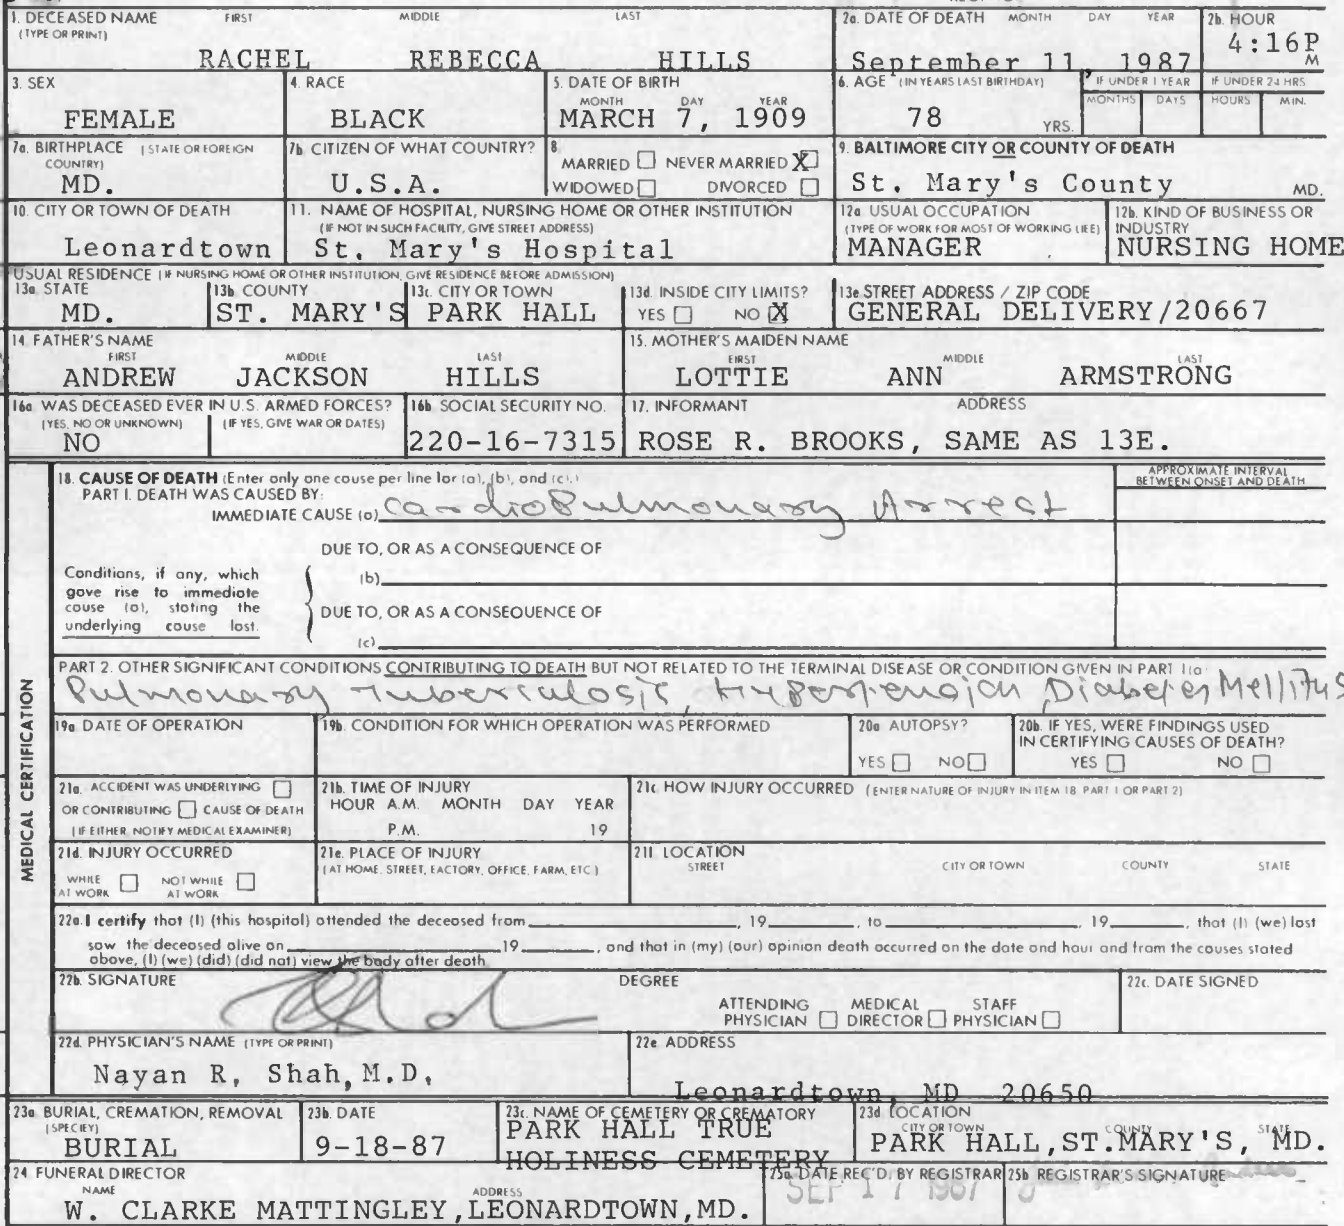 1. DECEASED NAME FIRST MIDDLE LAST
(TYPE OR PRINT)
RACHEL REBECCA HILLS
2a. DATE OF DEATH MONTH DAY YEAR
September 11, 1987
2b. HOUR
4:16P
M
3. SEX
FEMALE
4. RACE
BLACK
5. DATE OF BIRTH
MONTH DAY YEAR
MARCH 7, 1909
6. AGE (IN YEARS LAST BIRTHDAY)
78 YRS.
IF UNDER 1 YEAR
MONTHS DAYS
IF UNDER 24 HRS
HOURS MIN.
7a. BIRTHPLACE (STATE OR FOREIGN
COUNTRY)
MD.
7b. CITIZEN OF WHAT COUNTRY?
U.S.A.
8.
MARRIED ☐ NEVER MARRIED ☒
WIDOWED ☐ DIVORCED ☐
9. BALTIMORE CITY OR COUNTY OF DEATH
St. Mary's County MD.
10. CITY OR TOWN OF DEATH
Leonardtown
11. NAME OF HOSPITAL, NURSING HOME OR OTHER INSTITUTION
(IF NOT IN SUCH FACILITY, GIVE STREET ADDRESS)
St. Mary's Hospital
12a. USUAL OCCUPATION
(TYPE OF WORK FOR MOST OF WORKING LIFE)
MANAGER
12b. KIND OF BUSINESS OR
INDUSTRY
NURSING HOME
USUAL RESIDENCE (IF NURSING HOME OR OTHER INSTITUTION, GIVE RESIDENCE BEFORE ADMISSION)
13a. STATE
MD.
13b. COUNTY
ST. MARY'S
13c. CITY OR TOWN
PARK HALL
13d. INSIDE CITY LIMITS?
YES ☐ NO ☒
13e. STREET ADDRESS / ZIP CODE
GENERAL DELIVERY/20667
14. FATHER'S NAME
FIRST MIDDLE LAST
ANDREW JACKSON HILLS
15. MOTHER'S MAIDEN NAME
FIRST MIDDLE LAST
LOTTIE ANN ARMSTRONG
16a. WAS DECEASED EVER IN U.S. ARMED FORCES?
(YES, NO OR UNKNOWN) (IF YES, GIVE WAR OR DATES)
NO
16b. SOCIAL SECURITY NO.
220-16-7315
17. INFORMANT ADDRESS
ROSE R. BROOKS, SAME AS 13E.
MEDICAL CERTIFICATION
18. CAUSE OF DEATH (Enter only one cause per line for (a), (b), and (c).)
PART I. DEATH WAS CAUSED BY:
IMMEDIATE CAUSE (a) CardioPulmonary Arrest
APPROXIMATE INTERVAL
BETWEEN ONSET AND DEATH
DUE TO, OR AS A CONSEQUENCE OF
(b)
Conditions, if any, which
gave rise to immediate
cause (a), stating the
underlying cause last.
DUE TO, OR AS A CONSEQUENCE OF
(c)
PART 2. OTHER SIGNIFICANT CONDITIONS CONTRIBUTING TO DEATH BUT NOT RELATED TO THE TERMINAL DISEASE OR CONDITION GIVEN IN PART 1(a)
Pulmonary Tuberculosis, Hypertension Diabetes Mellitus
19a. DATE OF OPERATION
19b. CONDITION FOR WHICH OPERATION WAS PERFORMED
20a. AUTOPSY?
YES ☐ NO ☐
20b. IF YES, WERE FINDINGS USED
IN CERTIFYING CAUSES OF DEATH?
YES ☐ NO ☐
21a. ACCIDENT WAS UNDERLYING ☐
OR CONTRIBUTING ☐ CAUSE OF DEATH
(IF EITHER, NOTIFY MEDICAL EXAMINER)
21b. TIME OF INJURY
HOUR A.M. MONTH DAY YEAR
P.M. 19
21c. HOW INJURY OCCURRED (ENTER NATURE OF INJURY IN ITEM 18 PART 1 OR PART 2)
21d. INJURY OCCURRED
WHILE ☐ NOT WHILE ☐
AT WORK AT WORK
21e. PLACE OF INJURY
(AT HOME, STREET, FACTORY, OFFICE, FARM, ETC.)
21f. LOCATION
STREET CITY OR TOWN COUNTY STATE
22a. I certify that (I) (this hospital) attended the deceased from , 19 , to , 19 , that (I) (we) last
saw the deceased alive on 19 , and that in (my) (our) opinion death occurred on the date and hour and from the causes stated
above, (I) (we) (did) (did not) view the body after death
22b. SIGNATURE DEGREE
ATTENDING MEDICAL STAFF
PHYSICIAN ☐ DIRECTOR ☐ PHYSICIAN ☐
22c. DATE SIGNED
22d. PHYSICIAN'S NAME (TYPE OR PRINT)
Nayan R. Shah, M.D.
22e ADDRESS
Leonardtown, MD 20650
23a. BURIAL, CREMATION, REMOVAL
(SPECIFY)
BURIAL
23b. DATE
9-18-87
23c. NAME OF CEMETERY OR CREMATORY
PARK HALL TRUE
HOLINESS CEMETERY
23d LOCATION
CITY OR TOWN COUNTY STATE
PARK HALL, ST. MARY'S, MD.
24 FUNERAL DIRECTOR
NAME ADDRESS
W. CLARKE MATTINGLEY, LEONARDTOWN, MD.
25a. DATE REC'D. BY REGISTRAR
SEP 17 1987
25b. REGISTRAR'S SIGNATURE